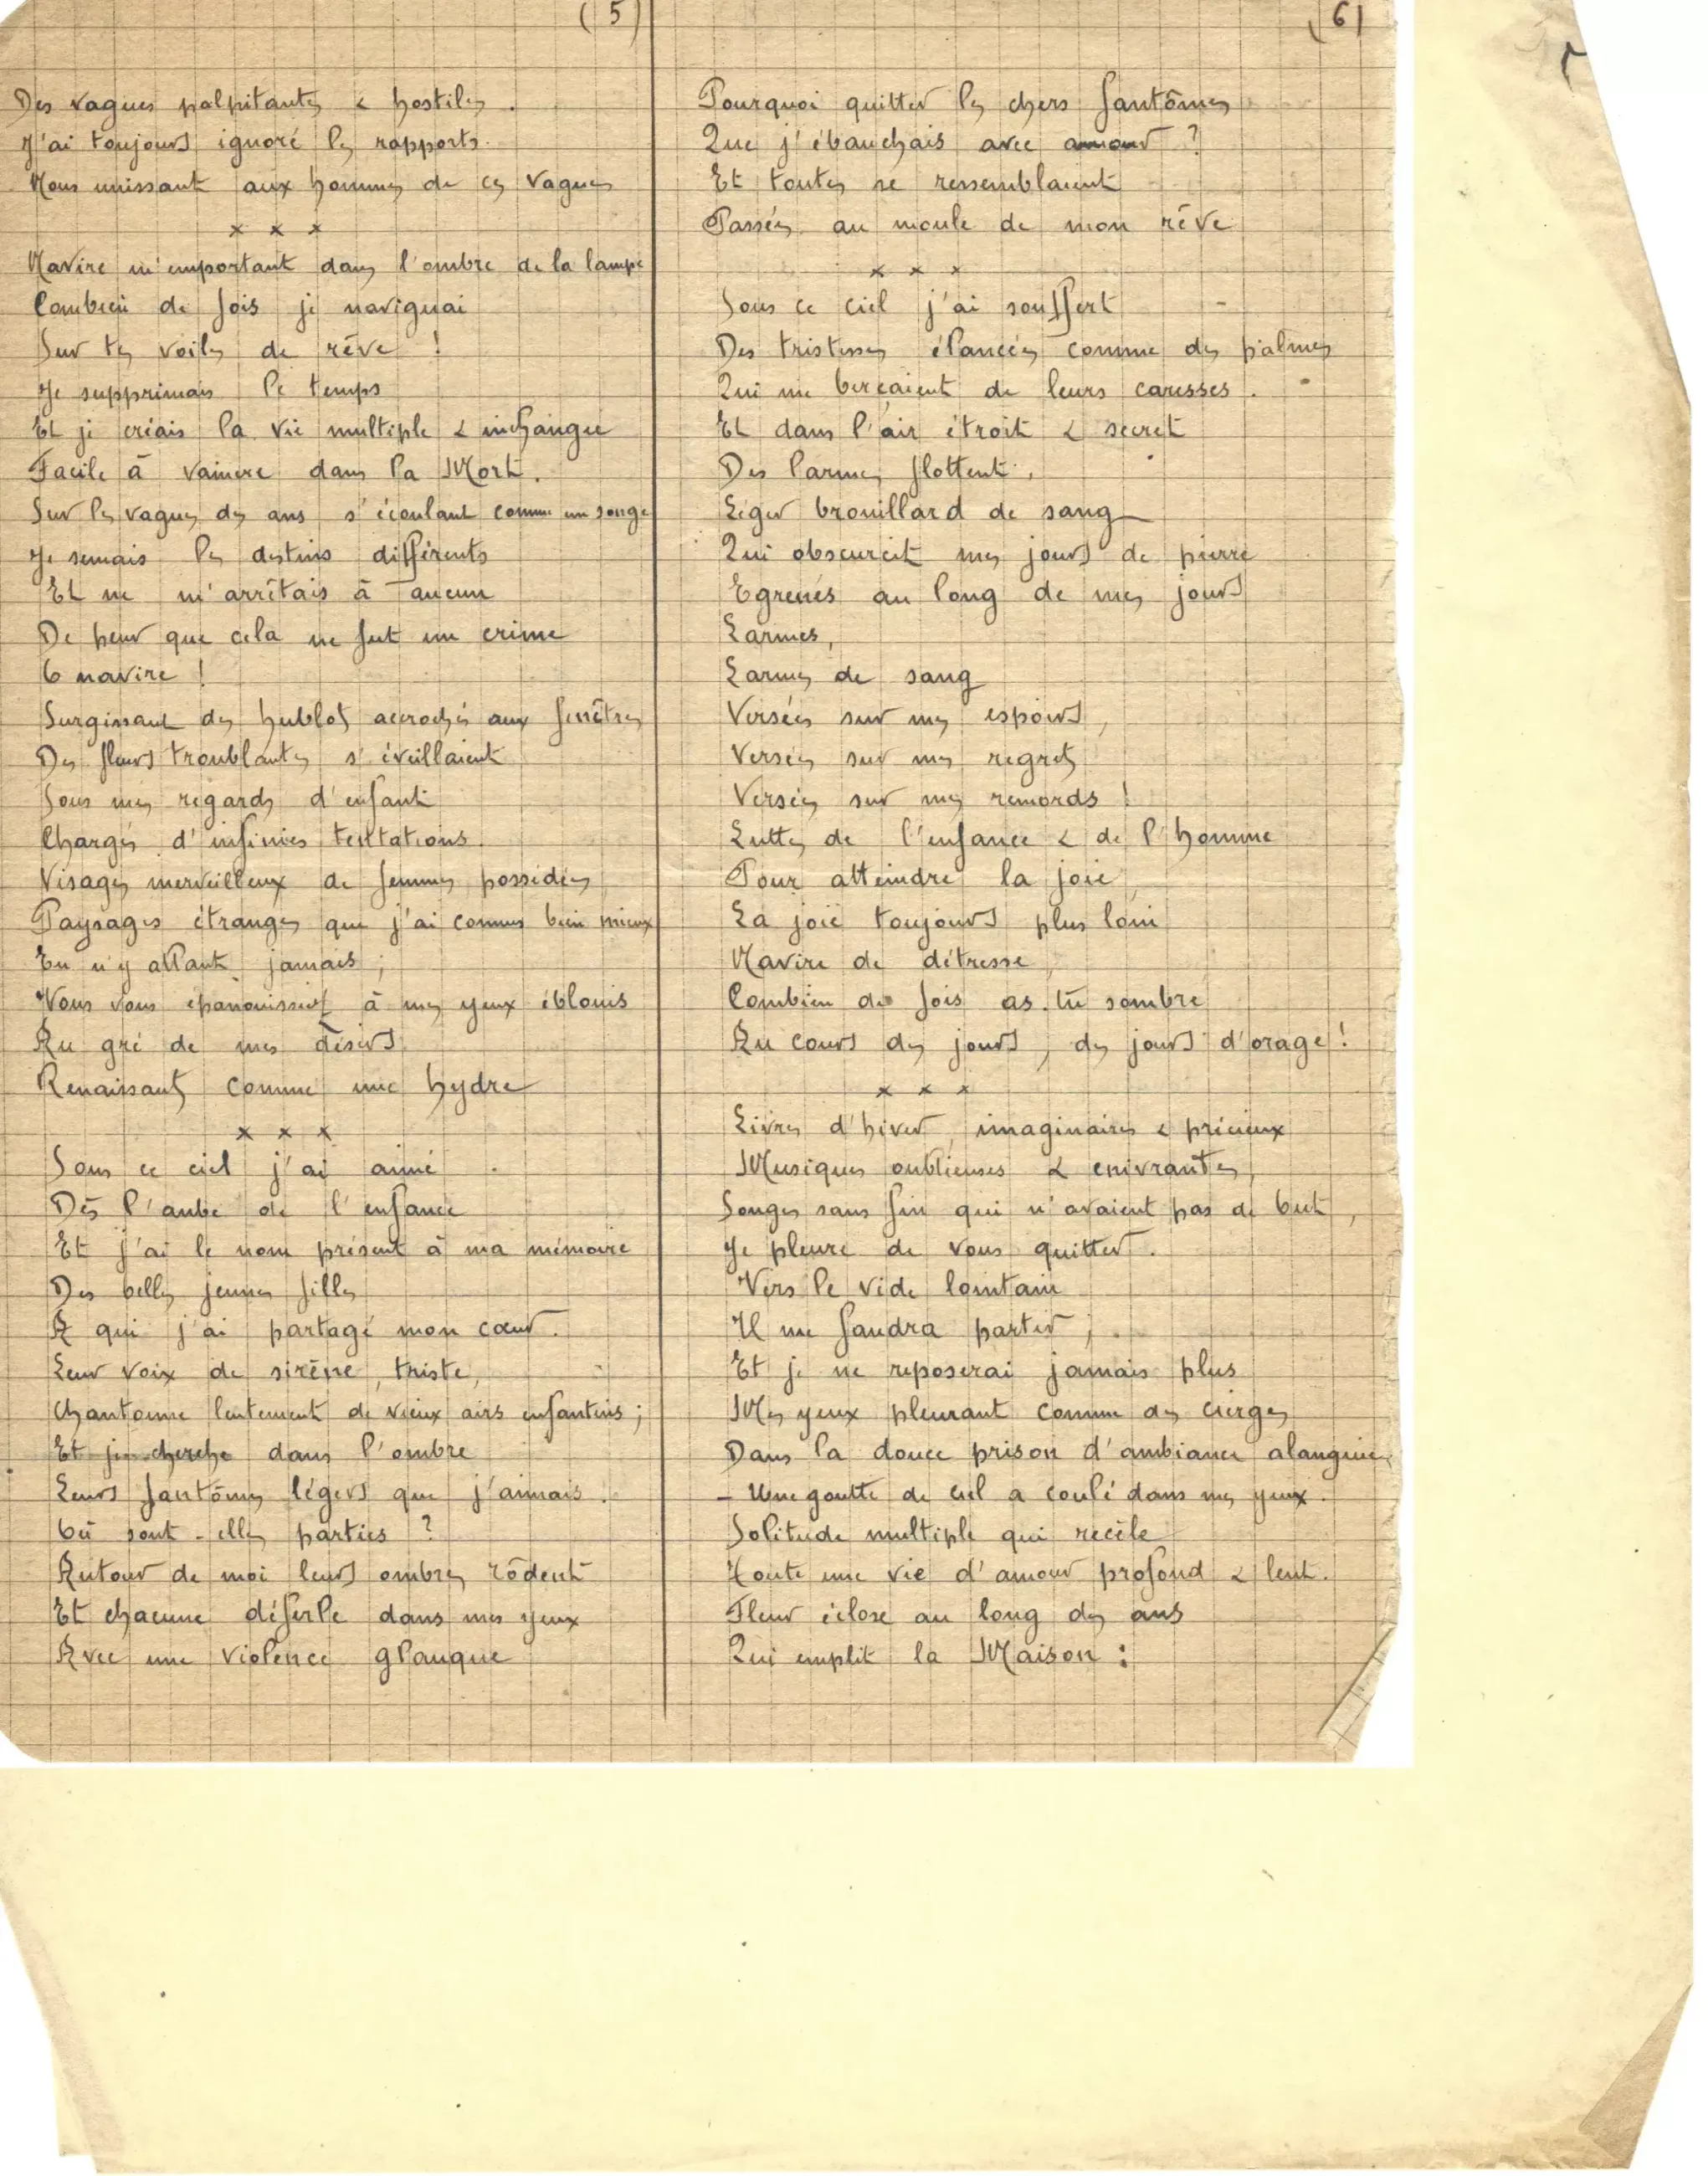 (5)
Des vagues palpitantes & hostiles.
J'ai toujours ignoré les rapports
Nous unissant aux hommes de ces vagues
x x x
Navire m'emportant dans l'ombre de la lampe
Combien de fois je naviguai
Sur tes voiles de rêve !
Je supprimais le temps
Et je criais la vie multiple & inchangée
Facile à vaincre dans la Mort.
Sur les vagues des ans s'écoulant comme un songe
Je semais les destins différents
Et ne m'arrêtais à aucun
De peur que cela ne fut un crime
O navire !
Surgissant des hublots accrochés aux fenêtres
Des fleurs troublantes s'éveillaient
Sous mes regards d'enfant
Chargés d'infinies tentations.
Visages merveilleux de femmes possédées
Paysages étranges que j'ai connus bien mieux
En n'y allant jamais ;
Vous vous épanouissiez à mes yeux éblouis
Au gré de mes désirs
Renaissants comme une hydre
x x x
Sous ce ciel j'ai aimé
Dès l'aube de l'enfance
Et j'ai le nom présent à ma mémoire
Des belles jeunes filles
A qui j'ai partagé mon cœur.
Leur voix de sirène, triste,
Chantonne lentement de vieux airs enfantins ;
Et je cherche dans l'ombre
Leurs fantômes légers que j'aimais.
Où sont-elles parties ?
Autour de moi leurs ombres rôdent
Et chacune déferle dans mes yeux
Avec une violence glauque
(6)
Pourquoi quitter les chers fantômes
Que j'ébauchais avec amour ?
Et toutes se ressemblaient
Passées au moule de mon rêve
x x x
Sous ce ciel j'ai souffert
Des tristesses élancées comme des palmes
Qui me berçaient de leurs caresses.
Et dans l'air étroit & secret
Des larmes flottent,
Léger brouillard de sang
Qui obscurcit mes jours de pierre
Egrenés au long de mes jours
Larmes,
Larmes de sang
Versées sur mes espoirs,
Versées sur mes regrets
Versées sur mes remords !
Luttes de l'enfance & de l'homme
Pour atteindre la joie,
La joie toujours plus loin
Navire de détresse,
Combien de fois as-tu sombré
Au cours des jours, des jours d'orage !
x x x
Livres d'hiver, imaginaires & précieux
Musiques oublieuses & enivrantes,
Songes sans fin qui n'avaient pas de but,
Je pleure de vous quitter.
Vers le vide lointain
Il me faudra partir ;
Et je ne reposerai jamais plus
Mes yeux pleurant comme des cierges
Dans la douce prison d'ambiance alanguie,
- Une goutte de ciel a coulé dans mes yeux.
Solitude multiple qui recèle
Toute une vie d'amour profond & lent.
Fleur éclose au long des ans
Qui emplit la Maison :